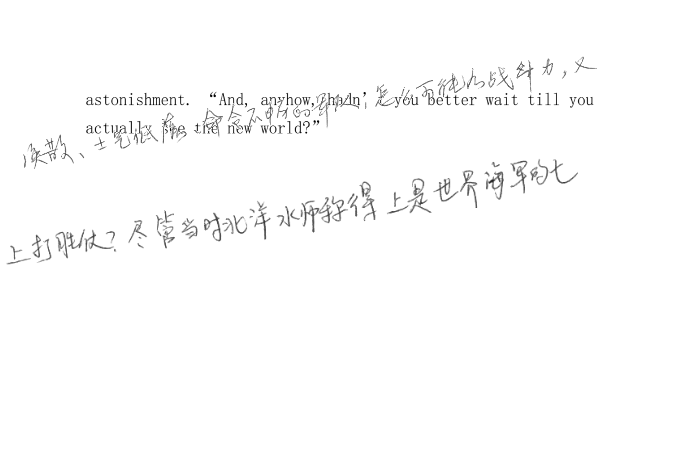 astonishment. “And, anyhow, hadn’t you better wait till you
actually see the new world?”
涣散、士气低落、命令不申的军队，怎么可能战斗力，又
上打胜仗？尽管当时北洋水师称得上是世界海军的七